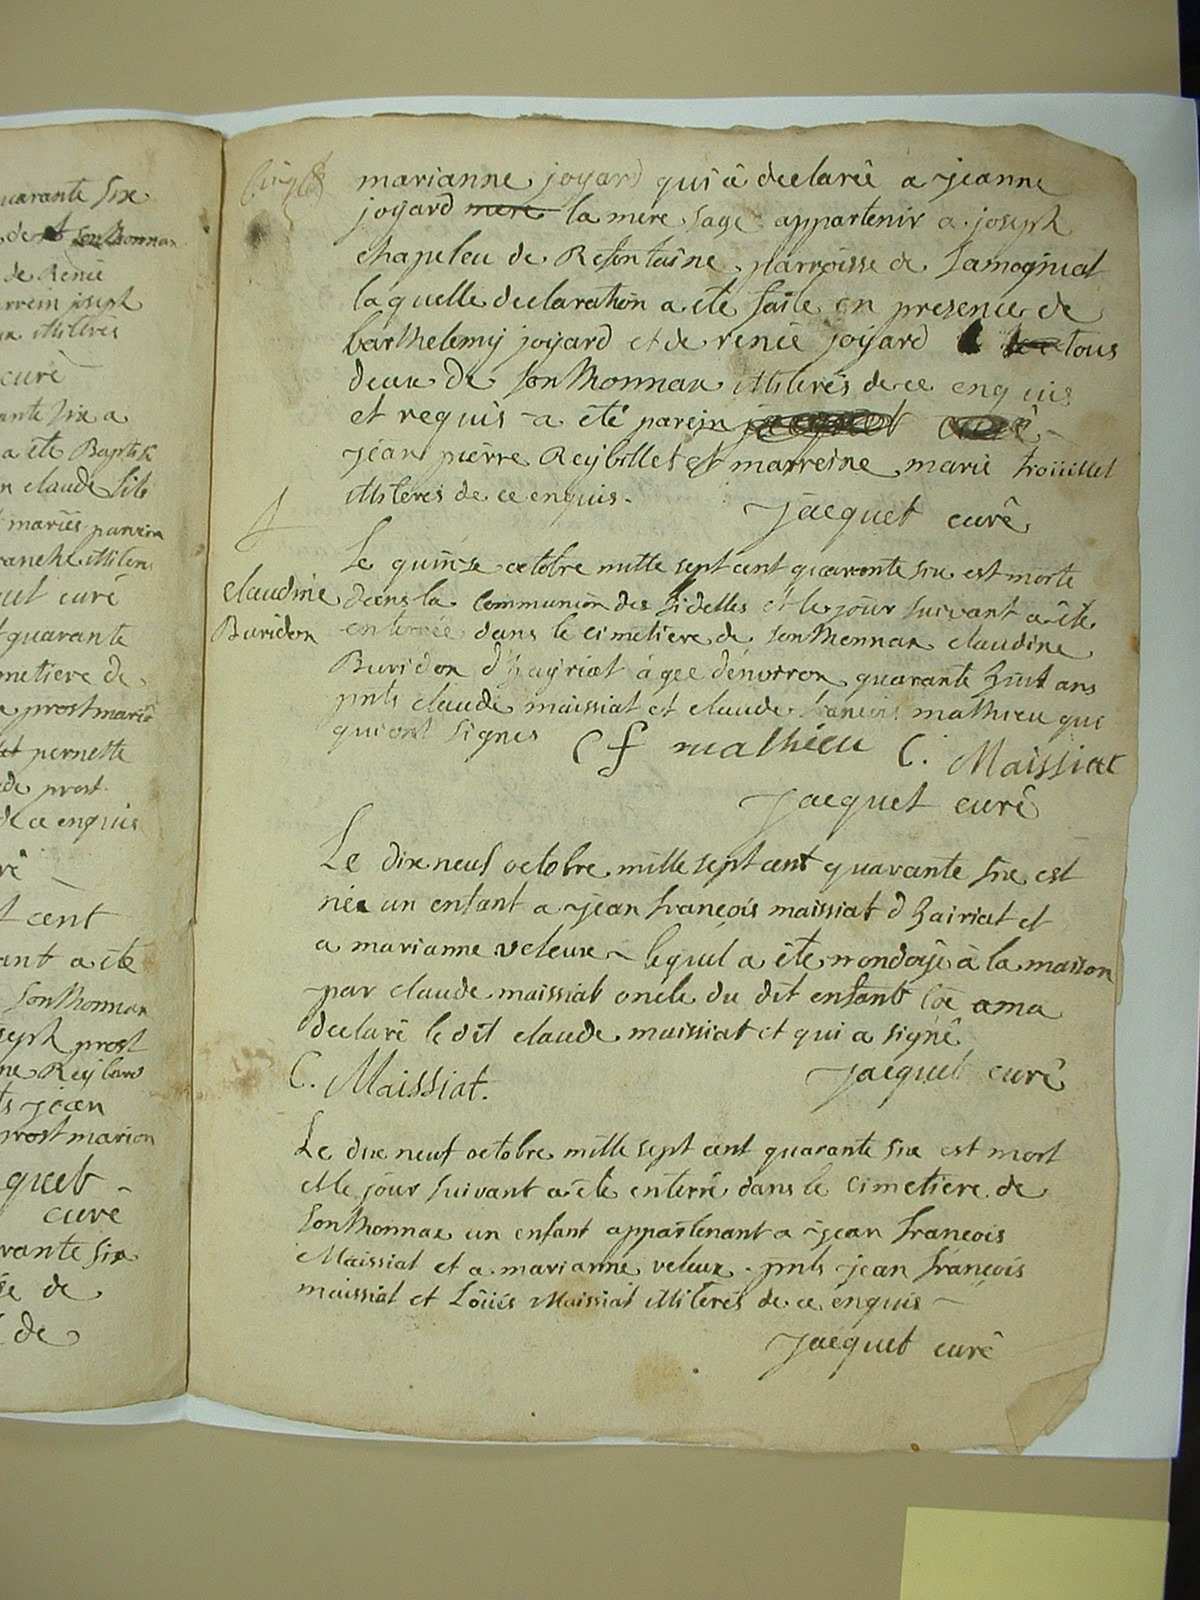 uarante six
de et sonthonnax
de Renée
arrein joseph
ux illiteres
curé
ante six a
a eté Baptisé
n claude fils
mariés parrein
ranche illiteres
uet curé
quarante
metiere de
prost marié
pernette
de prost
de ce enquis
ré
t cent
ant a eté
sonthonnax
seph prost
ne Reybard
ts jean
prost marion
quet
curé
rante six
se de
de
cinq
marianne joyard qui à declareé a jeanne
joyard mere la mere sage appartenir a joseph
chapeleu de Refontaine parroisse de samogniat
laquelle declaration a eté faite en presence de
barthelemy joyard et de renée joyard tous
deux de sonthonnax illiterés de ce enquis
et requis a été parein jacquet curé
jean pierre Reybillet et marreine marie troüillet
illiteres de ce enquis.
jacquet curê
claudine
Buridon
Le quinze octobre mille sept cent quaronte six est morte
dans la communion des fidelles et le jour suivant a été
enterrée dans le cimetiere de sonthonnax claudine
Buridon d'hayriat âgee dénviron quarante huit ans
pnts claude maissiat et claude francois mathieu qui
qui ont signes C f mathieu C. Maissiat
jacquet curê
Le dix neuf octobre mille sept cent quarante six est
né un enfant a jean francois maissiat d hairiat et
a marianne veleux lequel a éte nondoyé à la maison
par claude maissiat oncle du dit enfant coe a ma
declaré le dit claude maissiat et qui a signê
C. Maissiat. jacquet curê
Le dix neuf octobre mille sept cent quarante six est mort
et le jour suivant a eté enterré dans le cimetiere de
sonthonnax un enfant appartenant a jean francois
Maissiat et a marianne veleux pnts jean francois
maissiat et Loüis Maissiat illiterés de ce enquis
jacquet curê